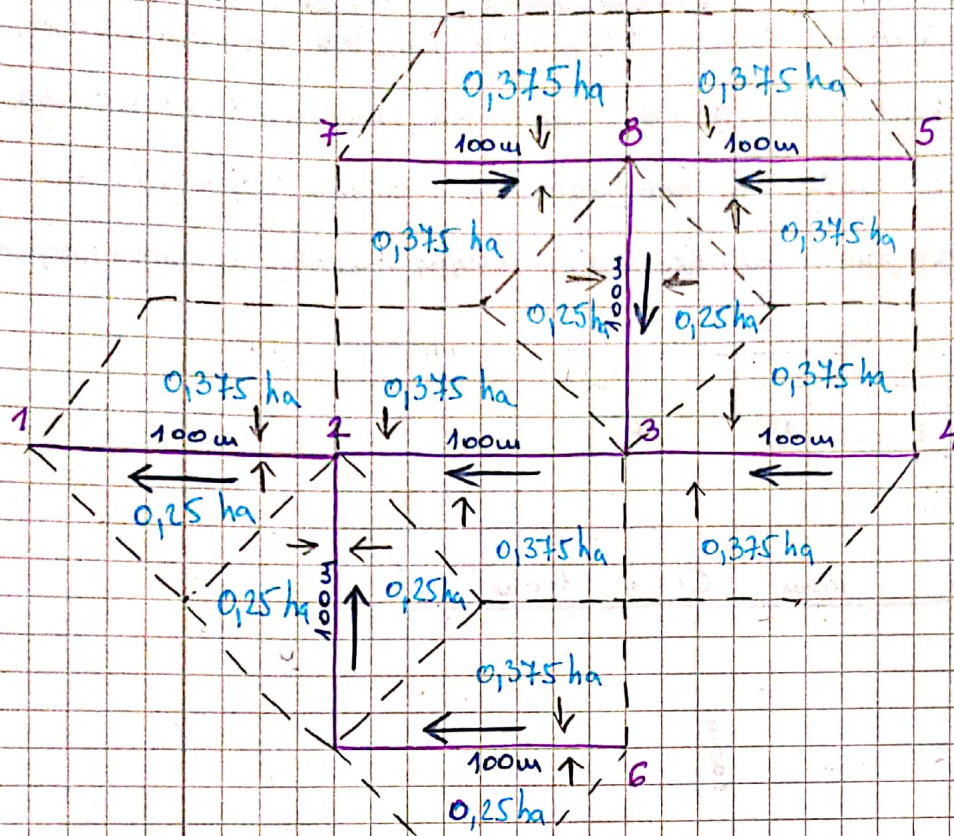 0,375 ha 0,375 ha
7 100m 8 100m 5
0,375 ha 0,375 ha
0,25 ha 100m 0,25 ha
0,375 ha 0,375 ha 0,375 ha
1 100m 2 100m 3 100m 4
0,25 ha 0,375 ha 0,375 ha
0,25 ha 100m 0,25 ha
0,375 ha
100m 6
0,25 ha